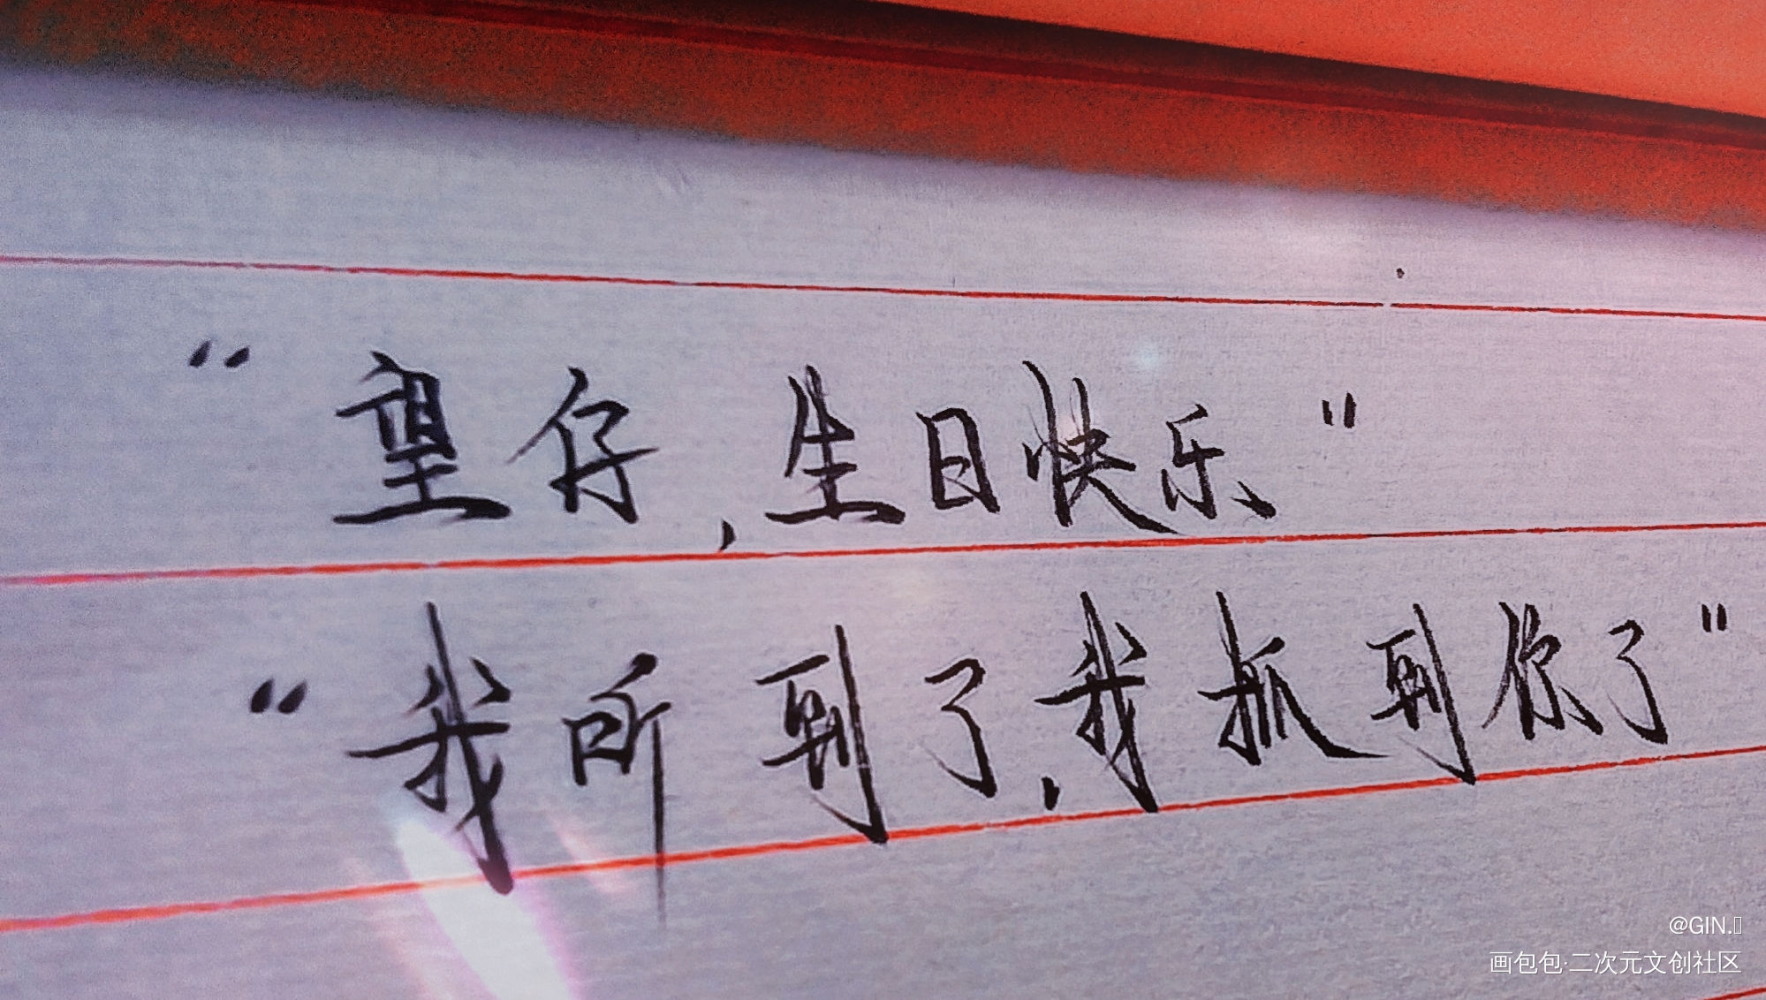 “望仔，生日快乐”
“我听到了，我抓到你了”
@GIN.
画包包·二次元文创社区